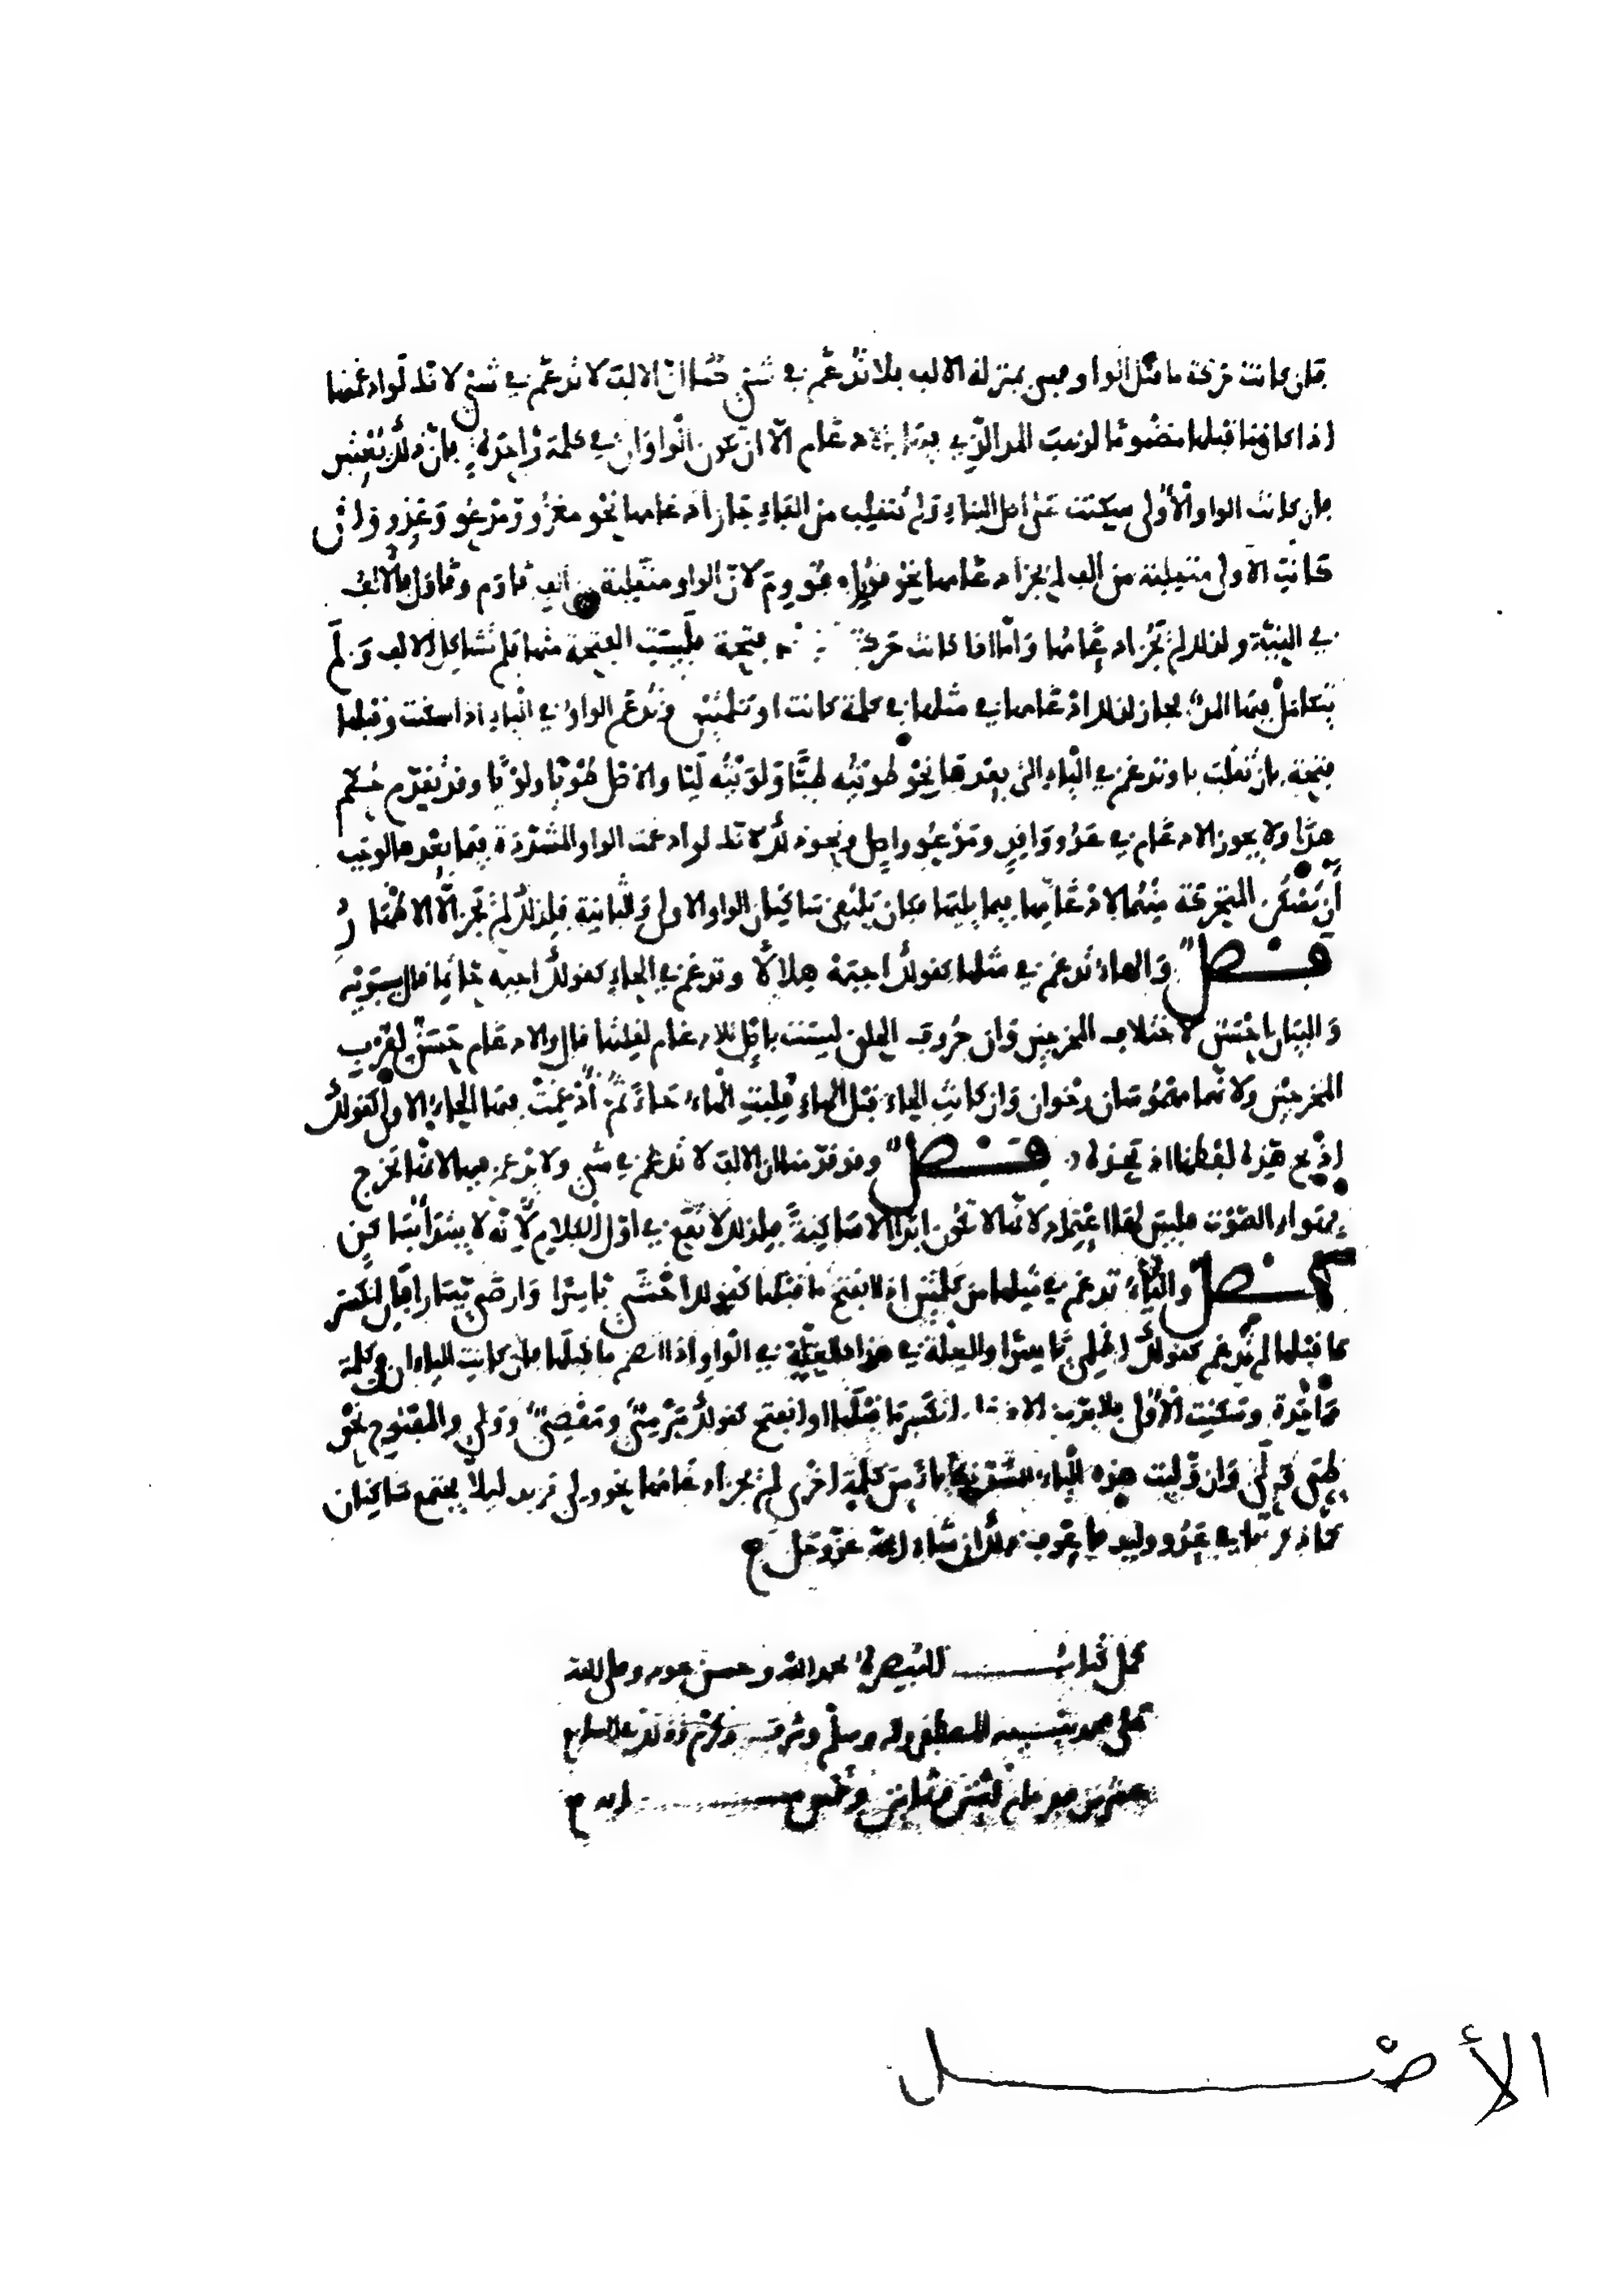 فإن كانت حركة ما قبل الواو فهي بمنزلة الالف فلا تدغم في شيء كما ان الالف لا تدغم في شيء لانك لو ادغمتها
اذا كان ما قبلها مضموما لذهب المد الذي فيها الا ان تكون الواوان في كلمة واحدة فان ذلك
فان كانت الواو الأولى سكنت على اصل البناء ولم تنقلب من الف جاز ادغامها نحو مغزو ومدعو وعدو وان
كانت الأولى منقلبة من الف لم يجز ادغامها نحو قووم لان الواو منقلبة من الف قاوم وقاول فالألف
في النية ولذلك لم يجز ادغامها واما اذا كانت حركة فتحة فليست الفتحة منها فلم تشاكل الالف ولم
يتكامل فيها المد فجاز لذلك ادغامها في مثلها في كلمة كانت او كلمتين وتدغم الواو في الياء اذا سكنت وقبلها
فتحة بان تقلب ياء وتدغم في الياء التي بعدها نحو طويته طيا ولويته ليا والاصل طويا ولويا وقد تقدم حكم
هذا ولا يجوز الادغام في عدو وافد ومدعو واصل ونحو ذلك لانك لو ادغمت الواو المشددة فيما بعدها لوجب
أن تسكن المتحركة منهما لادغامها فيما يليها فكان يلتقي ساكنان الواو الاولى والثانية فلذلك لم يجز الا الاظهار
فصل والهاء تدغم في مثلها كقولك اجبه هلالا وتدغم في الحاء كقولك اجبه حاتما قال سيبويه
والبيان احسن لاختلاف المخرجين وان حروف الحلق ليست باصل للادغام لقلتها قال والادغام حسن لقرب
المخرجين ولانهما مهموسان رخوان وان كانت الحاء قبل الهاء قلبت الهاء حاء ثم أدغمت فيها الحاء الاولى كقولك
اذبح هذه لفظها اذبحذه فصل وقد قدمنا ان الالف لا تدغم في شيء ولا يدغم فيها لانها تخرج
بهواء الصوت فليس لها اعتماد لانها لا تكون ابدا الا ساكنة فلذلك لا تقع في اول الكلام لأنه لا يبتدأ بساكن
فصل والياء تدغم في مثلها من كلمتين اذا انفتح ما قبلها كقولك اخشي ياسرا وارضي يسارا فان انكسر
ما قبلها لم تدغم كقولك اظلمي ياسرا والعلة في هذا كالعلة في الواو اذا انضم ما قبلها فان كانت الياءان في كلمة
واحدة وسكنت الأولى فلا بد من الادغام انكسر ما قبلها او انفتح كقولك مرمي ومقضي وولي والمفتوح نحو
طي ولي وان وليت هذه الياء المشددة ياء من كلمة اخرى لم يجز ادغامها نحو ولي يزيد ليلا يجتمع ساكنان
كما ذكرنا في عدو وليد فاعرف ذلك ان شاء الله عز وجل
كمل كتاب التبصرة بحمد الله وحسن عونه وصلى الله
على محمد نبيه المصطفى واله وسلم وشرف وكرم وذلك
الأصل